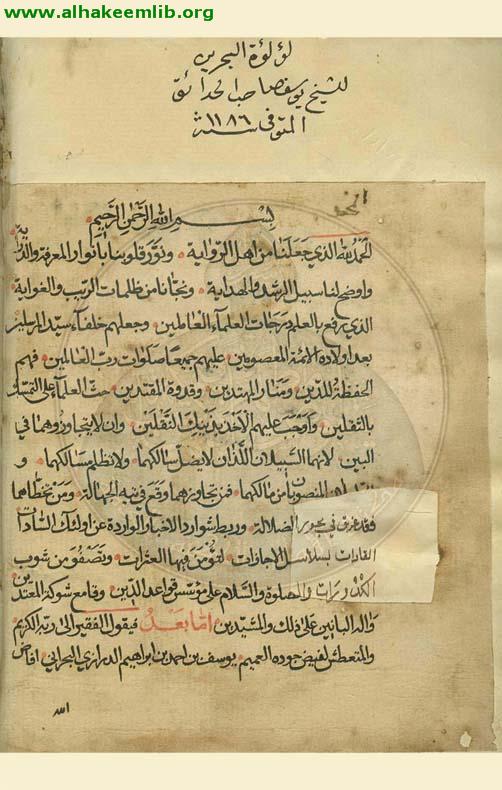 www.alhakeemlib.org
لؤلؤة البحرين
للشيخ يوسف صاحب الحدائق
المتوفى سنة ١١٨٦
بسم الله الرحمن الرحيم
الحمد لله الذي جعلنا من اهل الرواية ونور قلوبنا بانوار المعرفة والدراية
واوضح لنا سبيل الرشد والهداية ونجانا من ظلمات الريب والغواية
الذي رفع بالعلم درجات العلماء العاملين وجعلهم خلفاء سيد المرسلين
بعد اولاده الائمة المعصومين عليهم جميعا صلوات رب العالمين فهم
الحفظة للدين ومنار المهتدين وقدوة المقتدين حث العلماء على التمسك
بالثقلين واوجب عليهم الاخذ بذينك الثقلين وان لا يتجاوزوهما في
البين لانهما السبيلان اللذان لا يضل سالكهما ولا تظلم مسالكهما و
المنصوبان من مالكهما فمن تجاوزهما وقع في تيه الجهالة ومن تخطاهما
فقد غرق في بحور الضلالة وربط شوارد الاخبار الواردة عن اولئك السادات
القادات بسلاسل الاجازات لتؤمن فيها العثرات وتصفو من شوب
الكدورات والصلوة والسلام على مؤسس قواعد الدين وقامع شوكة المعتدين
واله البانين على ذلك والمشيدين اما بعد فيقول الفقير الى ربه الكريم
والمتعطش لفيض جوده العميم يوسف بن احمد بن ابراهيم الدرازي البحراني افاض
الله